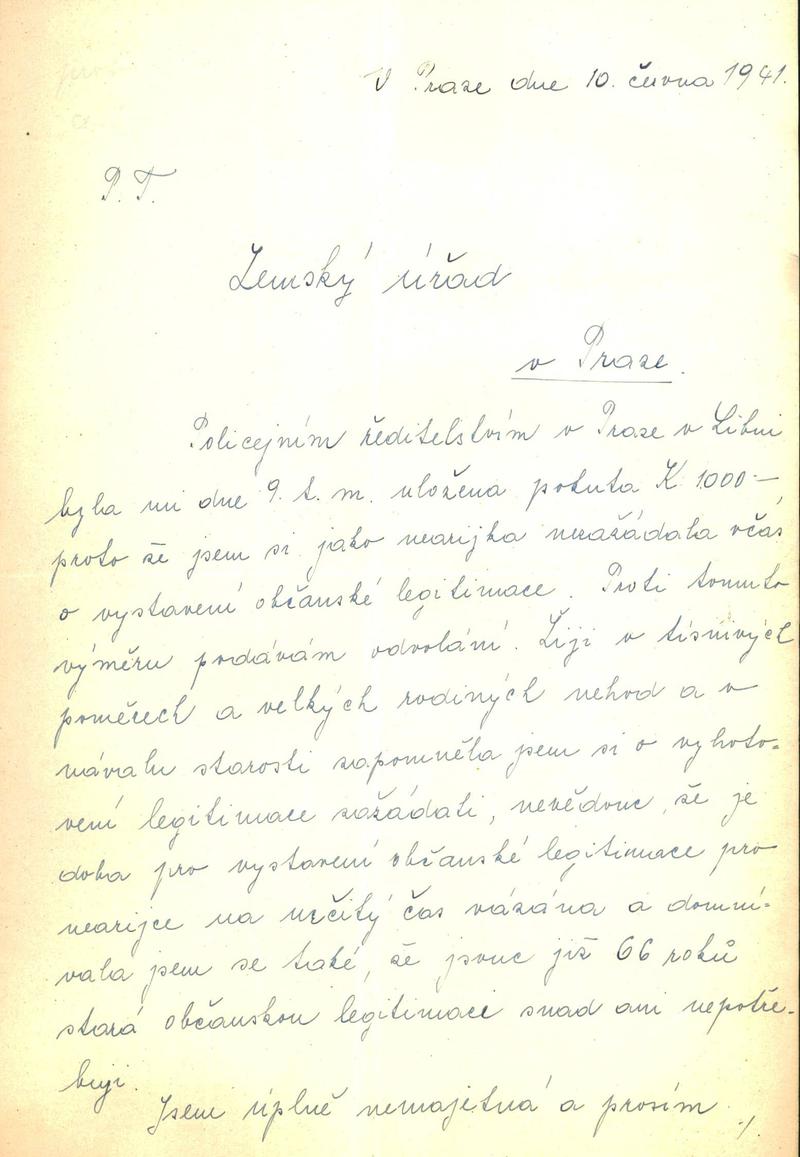 V Praze dne 10. června 1941.
P. T.
Zemský úřad
v Praze.
Policejním ředitelstvím v Praze v Libni
byla mi dne 9. t. m. uložena pokuta K 1000-,
proto že jsem si jako nearijka nezažádala včas
o vystavení občanské legitimace. Proti tomuto
výměru podávám odvolání. Žiji v tísnivých
poměrech a velkých rodiných nehod a v
návalu starosti zapomněla jsem si o vyhoto=
vení legitimace zažádati, nevědouc, že je
doba pro vystavení občanské legitimace pro
nearijce na určitý čas vázána a domní=
vala jsem se také, že jsouc již 66 roků
stará občanskou legitimaci snad ani nepotře-
buji.
Jsem úplně nemajetná a prosím
./.